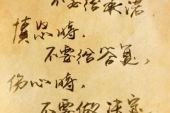 不要给承诺，
愤怒时，
不要给答复，
伤心时，
不要做决定